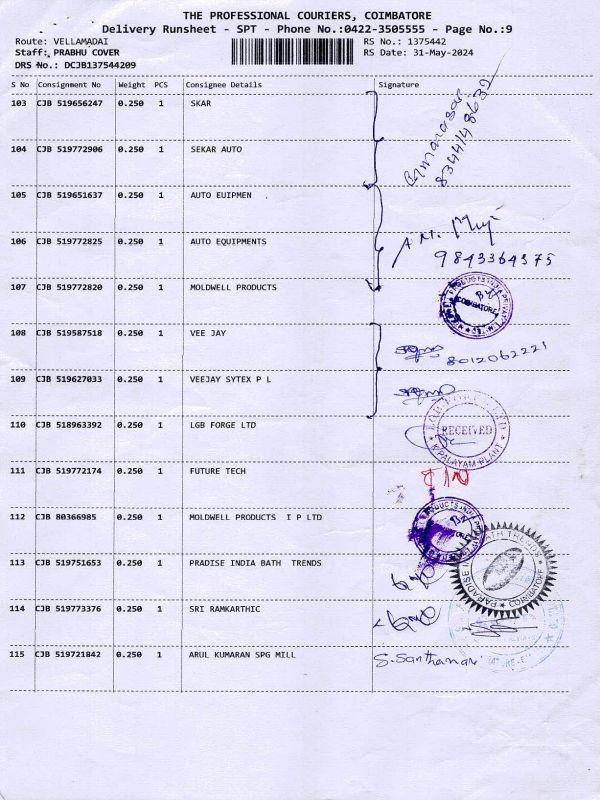 THE PROFESSIONAL COURIERS, COIMBATORE
Delivery Runsheet - SPT - Phone No.:0422-3505555 - Page No.:9
Route: VELLAMADAI RS No.: 1375442
Staff: PRABHU COVER RS Date: 31-May-2024
DRS No.: DCJB137544209
S No Consignment No Weight PCS Consignee Details Signature
103 CJB 519656247 0.250 1 SKAR
8344148632
104 CJB 519772906 0.250 1 SEKAR AUTO
105 CJB 519651637 0.250 1 AUTO EUIPMEN
106 CJB 519772825 0.250 1 AUTO EQUIPMENTS
9843364375
107 CJB 519772820 0.250 1 MOLDWELL PRODUCTS
COIMBATORE
108 CJB 519587518 0.250 1 VEE JAY
8012062221
109 CJB 519627033 0.250 1 VEEJAY SYTEX P L
110 CJB 518963392 0.250 1 LGB FORGE LTD
LGB FORGE LTD
RECEIVED
K PALAYAM PLANT
111 CJB 519772174 0.250 1 FUTURE TECH
112 CJB 80366985 0.250 1 MOLDWELL PRODUCTS I P LTD
113 CJB 519751653 0.250 1 PRADISE INDIA BATH TRENDS
PARADISE INDIA BATH TRENDS
COIMBATORE
114 CJB 519773376 0.250 1 SRI RAMKARTHIC
115 CJB 519721842 0.250 1 ARUL KUMARAN SPG MILL S. Santhanam